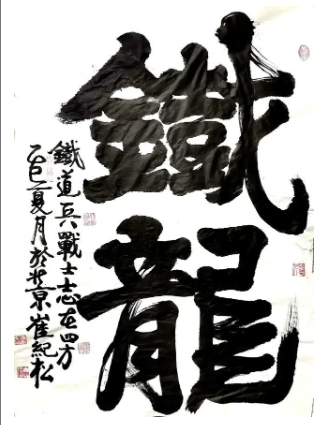 鐵龍
鐵道兵戰士志在四方
乙巳夏月於北京崔紀松